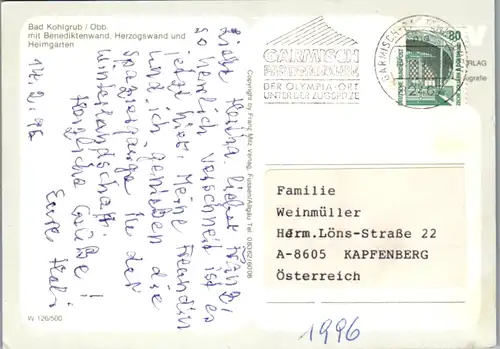 Bad Kohlgrub / Obb.
mit Benediktenwand, Herzogswand und
Heimgarten
17.2.96
Liebe Herta, lieber Franz!
So herrlich verschneit ist es
jetzt hier. Meine Freundin
und ich genießen die
Spaziergänge in der
Winterlandschaft.
Herzliche Grüße!
Eure
W 126/500
Copyright by Franz Milz Verlag, Füssen/Allgäu Tel. 08362/6008
GARMISCH
PARTENKIRCHEN
DER OLYMPIA-ORT
UNTER DER ZUGSPITZE
GARMISCH-
80
Familie
Weinmüller
Herm.Löns-Straße 22
A-8605 KAPFENBERG
Österreich
1996